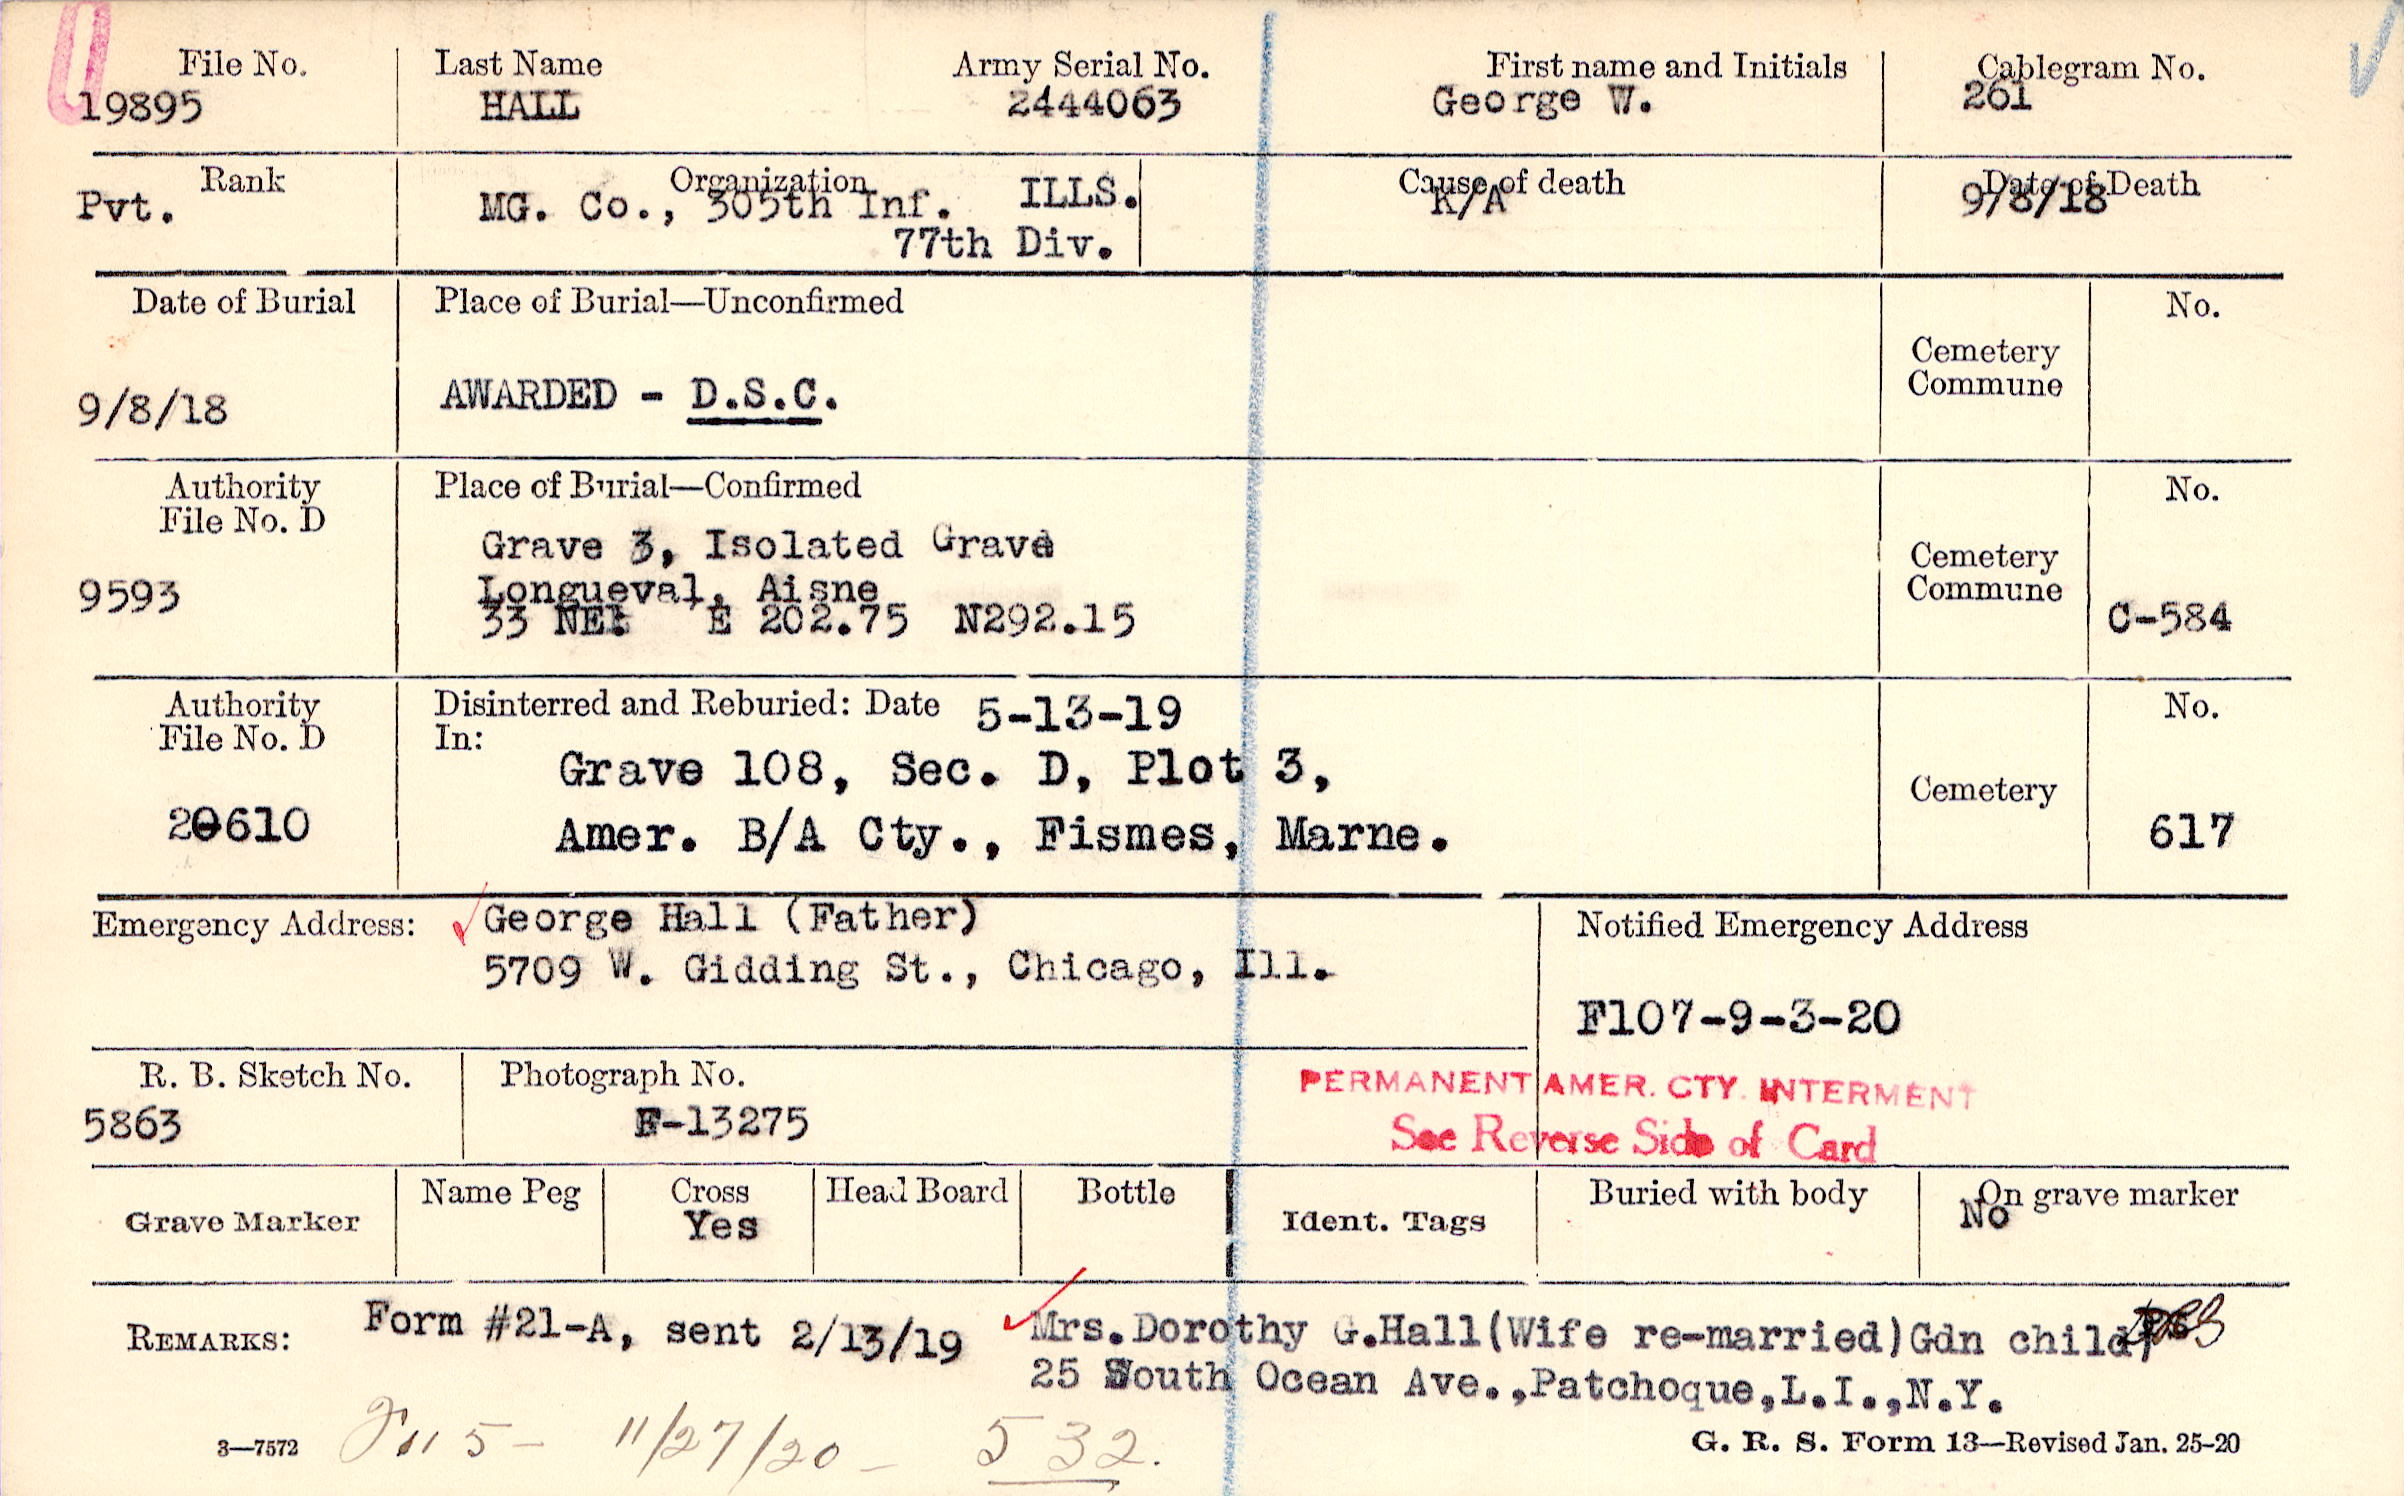 File No. Last Name Army Serial No. First name and Initials Cablegram No.
19895 HALL 2444063 George W. 261
Rank Organization Cause of death Date of Death
Pvt. MG. Co., 305th Inf. ILLS. K/A 9/8/18
77th Div.
Date of Burial Place of Burial—Unconfirmed No.
Cemetery
Commune
9/8/18 AWARDED - D.S.C.
Authority Place of Burial—Confirmed No.
File No. D
Grave 3, Isolated Grave
Cemetery
Commune
9593 Longueval, Aisne
33 NE: E 202.75 N292.15 C-584
Authority Disinterred and Reburied: Date 5-13-19 No.
File No. D In:
Grave 108, Sec. D, Plot 3,
Cemetery
20610 Amer. B/A Cty., Fismes, Marne. 617
Emergency Address: George Hall (Father) Notified Emergency Address
5709 W. Gidding St., Chicago, Ill.
F107-9-3-20
R. B. Sketch No. Photograph No. PERMANENT AMER. CTY. INTERMENT
5863 F-13275 See Reverse Side of Card
Grave Marker Name Peg Cross Head Board Bottle Ident. Tags Buried with body On grave marker
Yes No
REMARKS: Form #21-A, sent 2/13/19 Mrs.Dorothy G.Hall(Wife re-married)Gdn child,
25 South Ocean Ave.,Patchoque,L.I.,N.Y.
3—7572 5- 11/27/20 - 532. G. R. S. Form 13—Revised Jan. 25-20